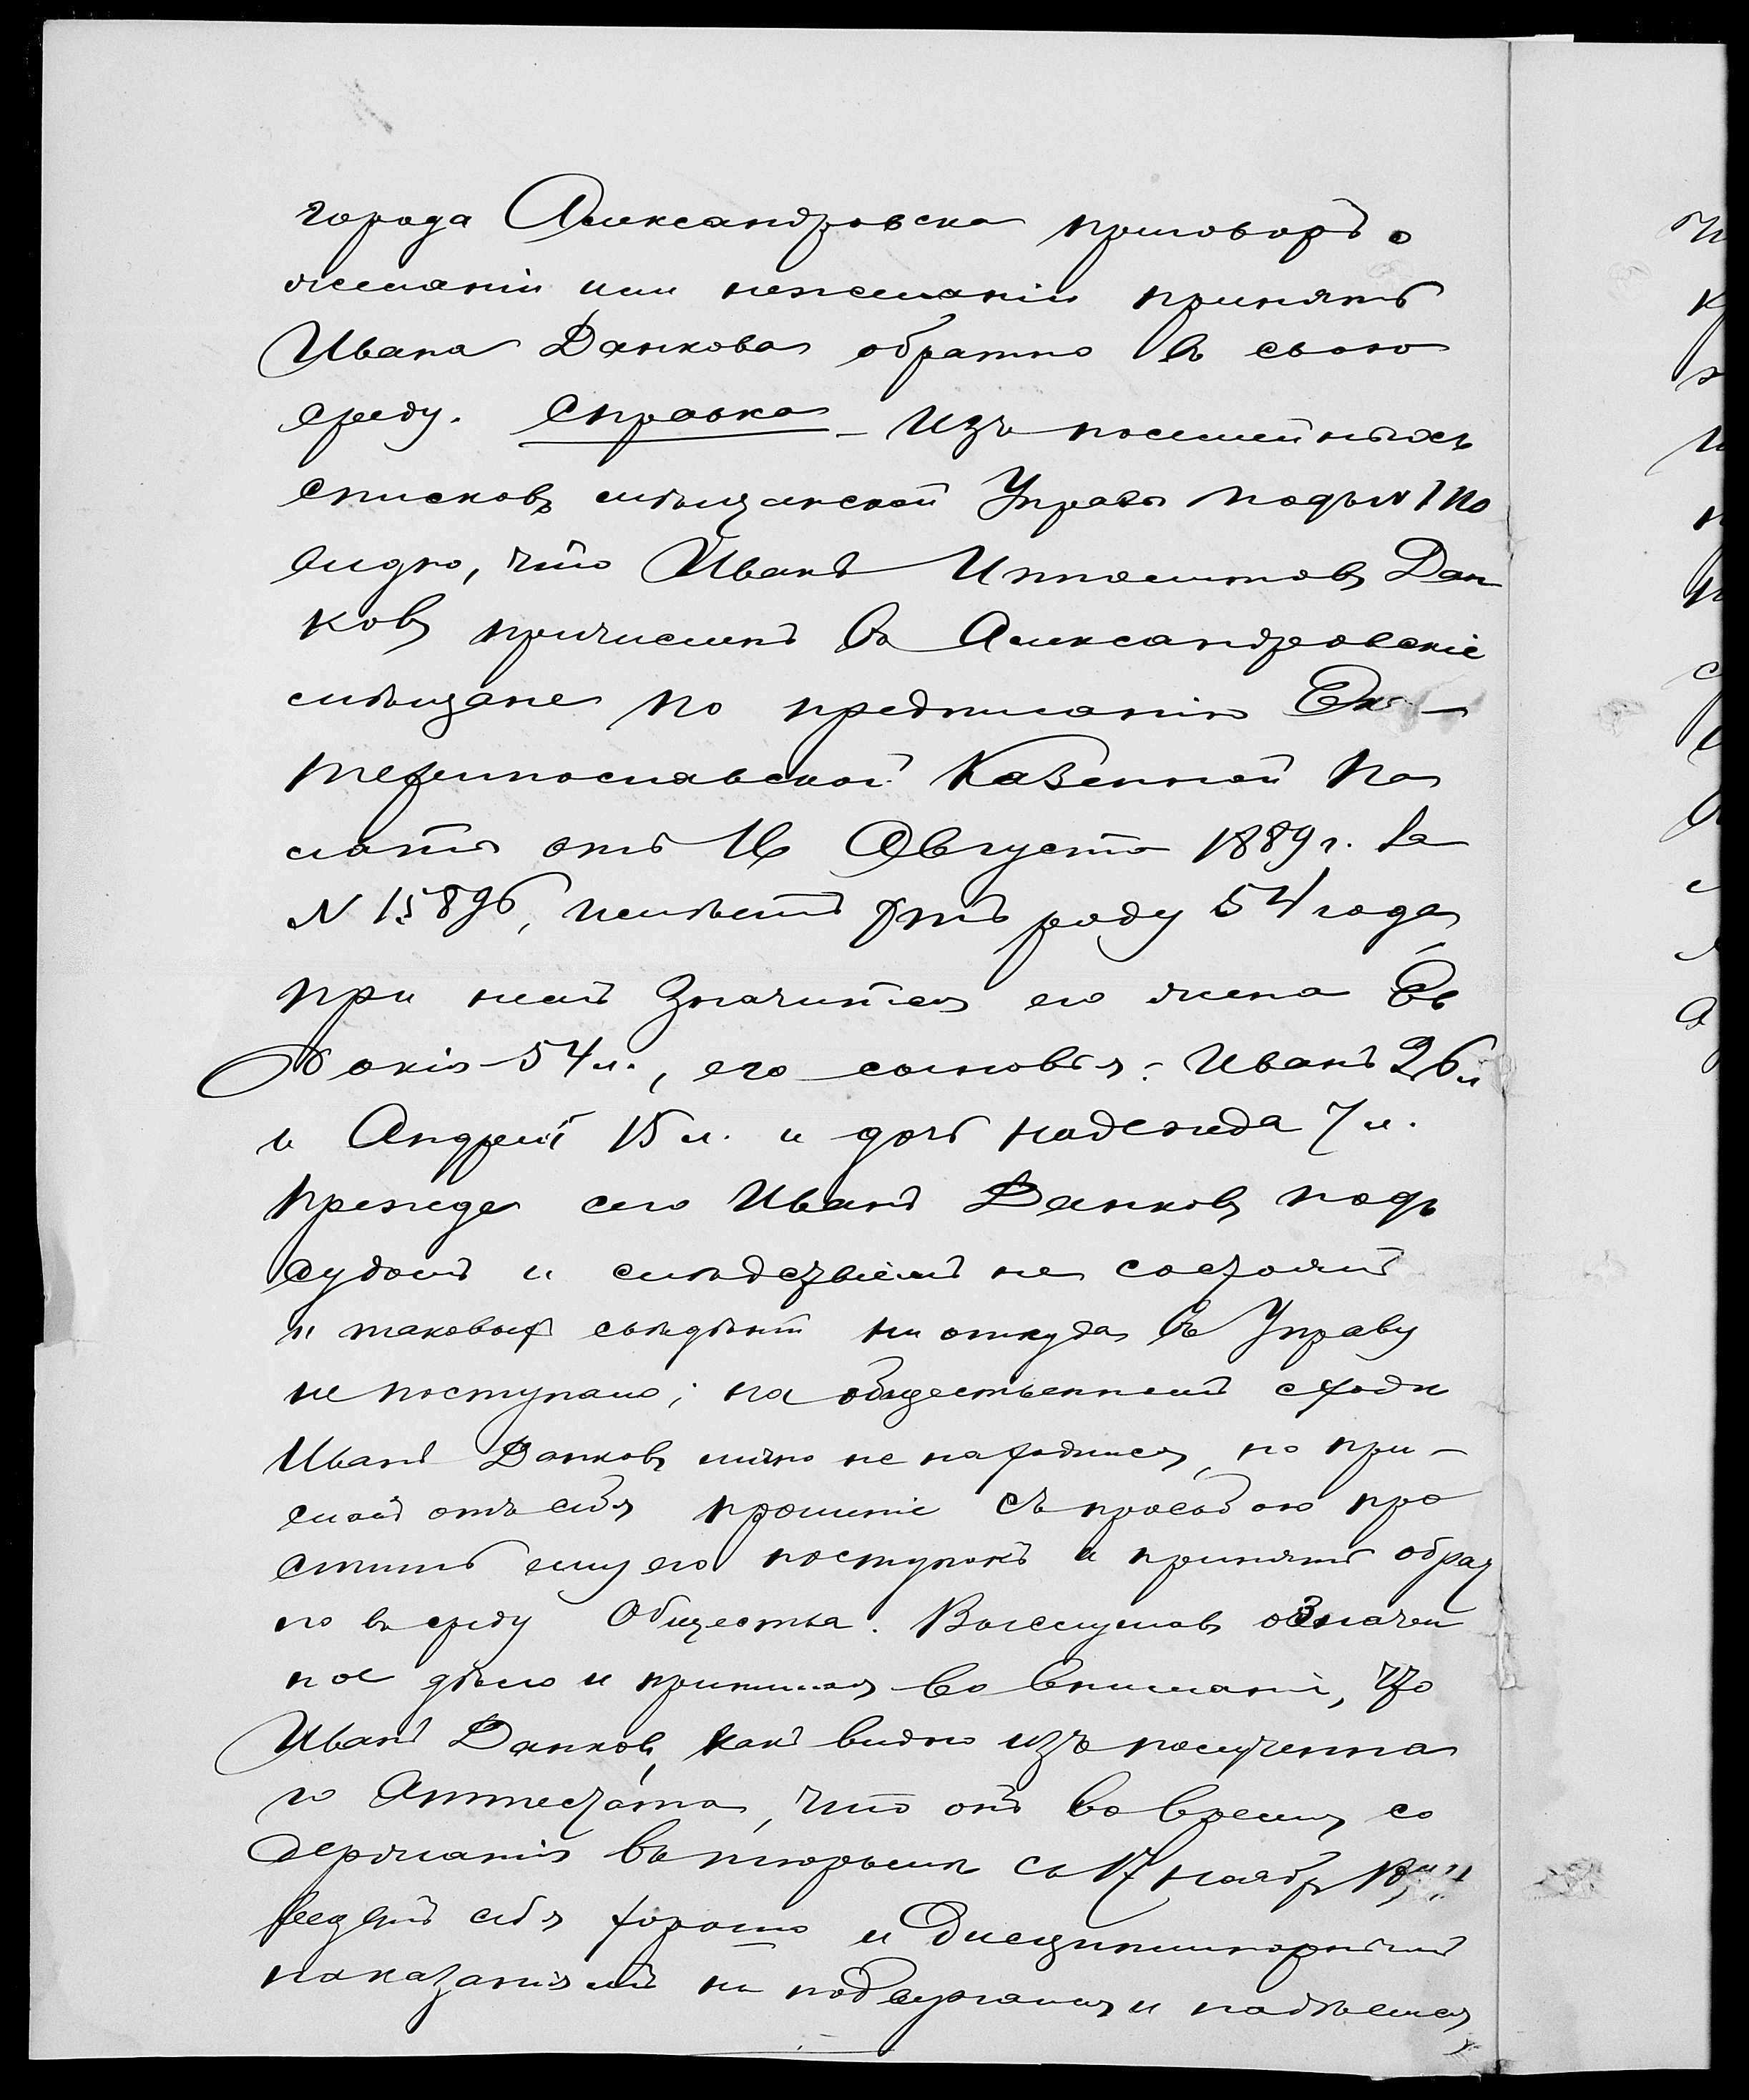 города Александровска приговоръ о
желаніи или нежеланіи принять
Ивана Данкова обратно въ свою
среду. Справка – Изъ посемейныхъ
списковъ мѣщанской Управы подъ №
видно, что Иванъ Ипполитовъ Дан
ковъ причисленъ въ Александровскіе
мѣщане по предписанію Ека-
теринославской Казенной Па
латы отъ 16 Августа 1889 г. за
N 15896, имѣетъ отъ роду 54 года,
при немъ значится его жена Ев
докія 54 л., его сыновья: Иванъ 26 л
и Андрей 15 л. и дочь Надежда 7 л.
Прежде сего Иванъ Данковъ подъ
судомъ и слѣдствіемъ не состоялъ
и таковыхъ свѣдѣній ни откуда въ Управу
не поступало; на общественномъ сходѣ
Иванъ Данковъ лично не находился, но при-
слалъ отъ себя прошеніе съ просьбою про
стить ему его поступокъ и принять обрат
но въ среду Общества. Выслушавъ означен
ное дѣло и принимая во вниманіе, что
Иванъ Данковъ, какъ видно изъ полученна
го Аттестата, что онъ во время со
держанія въ тюрьмѣ съ 17 Ноября
ведетъ себя хорошо и дисциплинарнымъ
наказаніямъ не подвергался и надѣемся,